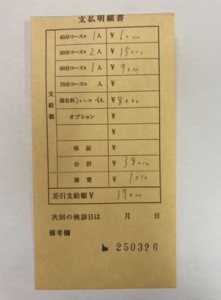 支払明細書
支給額
40分コース× 1人 ¥ 6000
50分コース× 2人 ¥ 15000
60分コース× 1人 ¥ 9000
70分コース× 人 ¥
指名料 4人 ¥ 8000
オプション ¥
¥
保証 ¥
合計 ¥ 38000
雑費 ¥ 1000
差引支給額 ¥ 37000
次回の検診日は 月 日
備考欄
250326